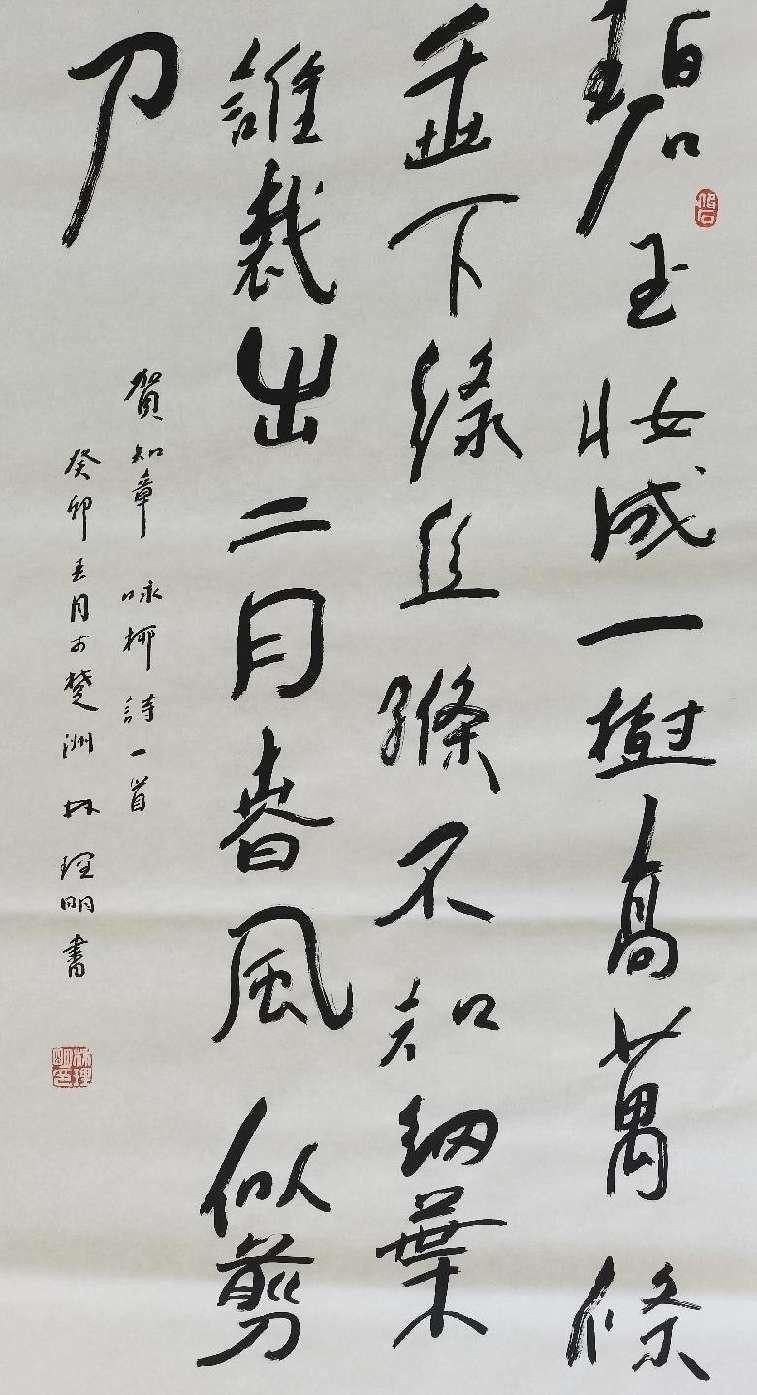 碧玉妝成一樹高萬條
垂下綠丝縧不知細葉
誰裁出二月春風似剪
刀
賀知章 咏柳詩一首
癸卯月於楚洲 林理明書
林理明印